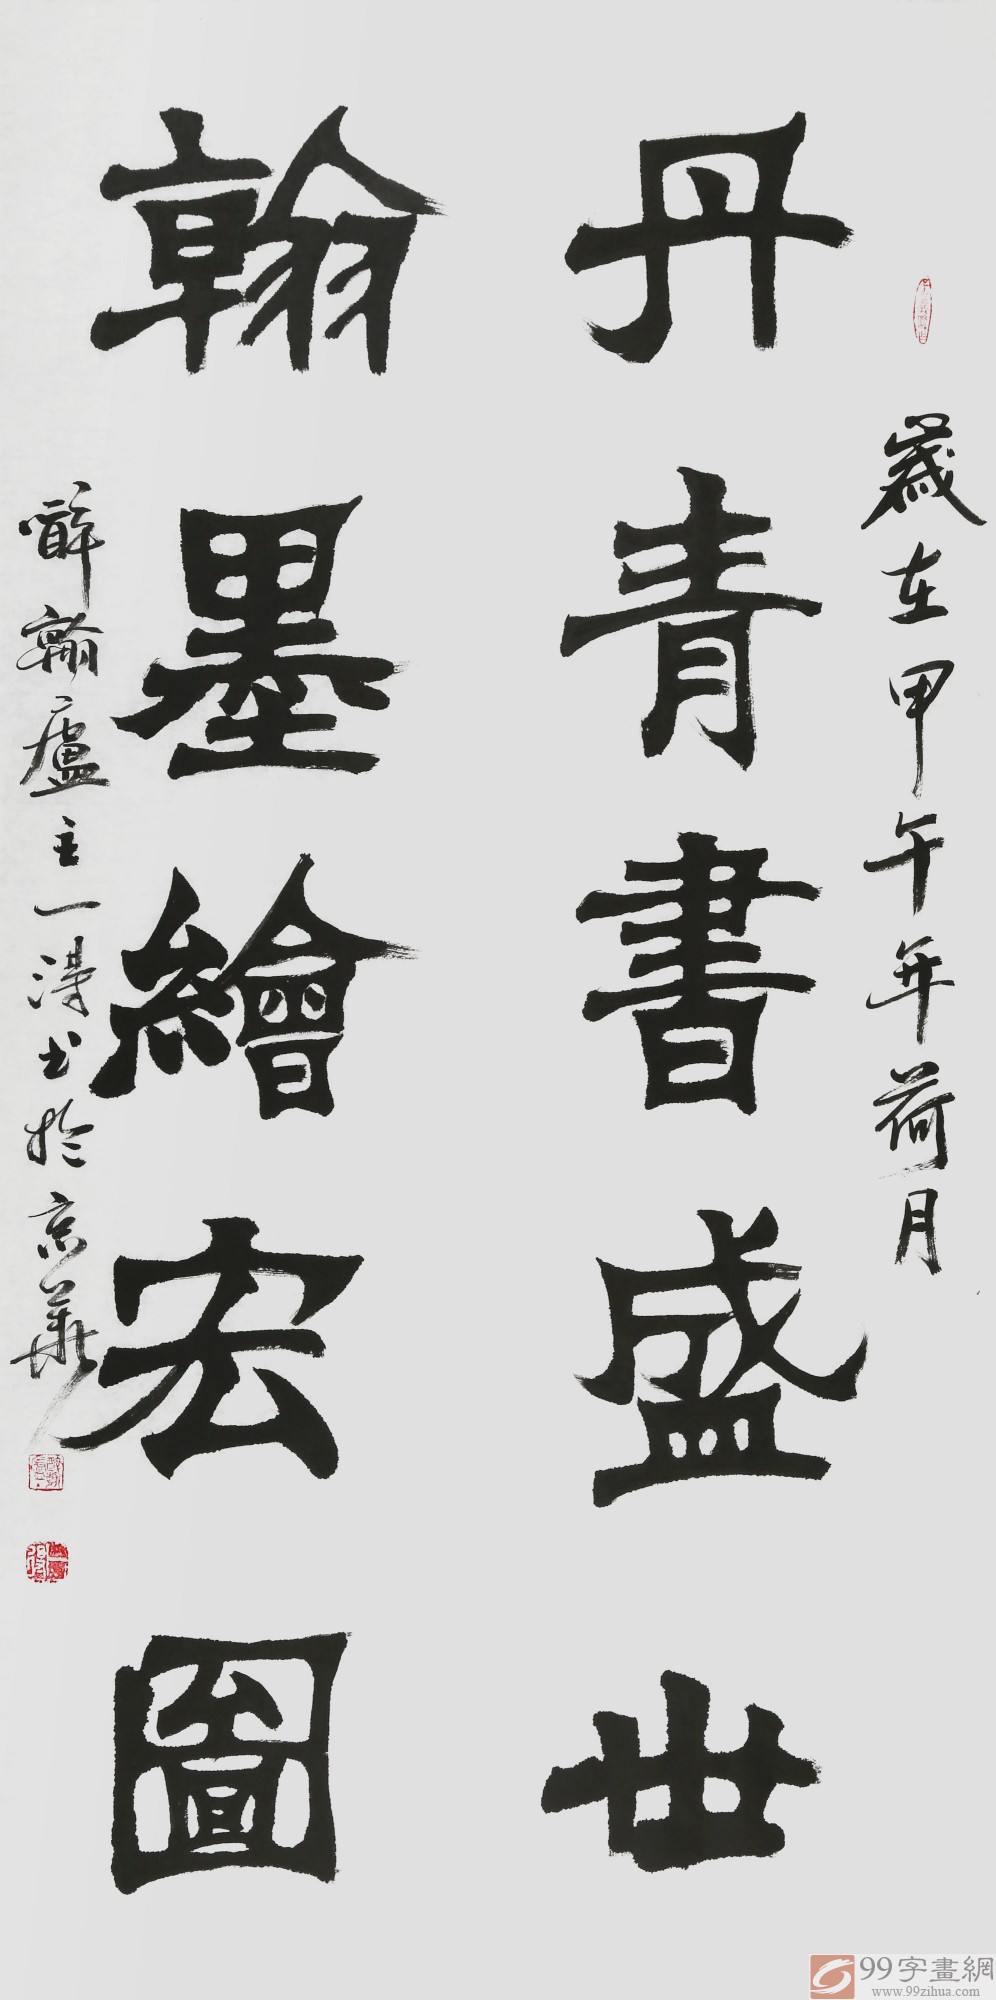 歲在甲午年荷月
丹青書盛世
翰墨繪宏圖
醉翰廬主一濤書於京華
99字畫網
www.99zihua.com